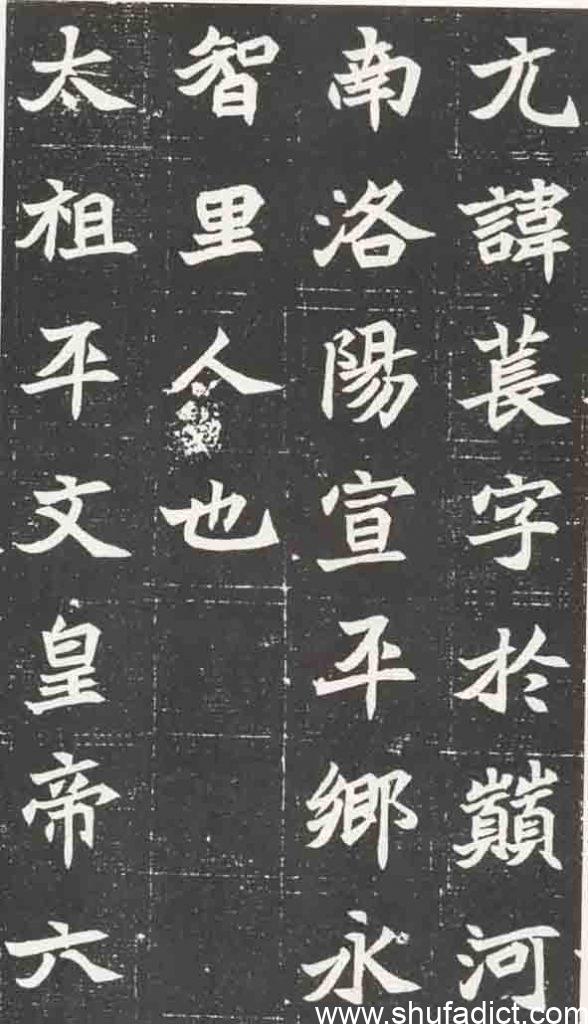 元諱萇字於巔河
南洛陽宣平鄉永
智里人也
太祖平文皇帝六
www.shufadict.com